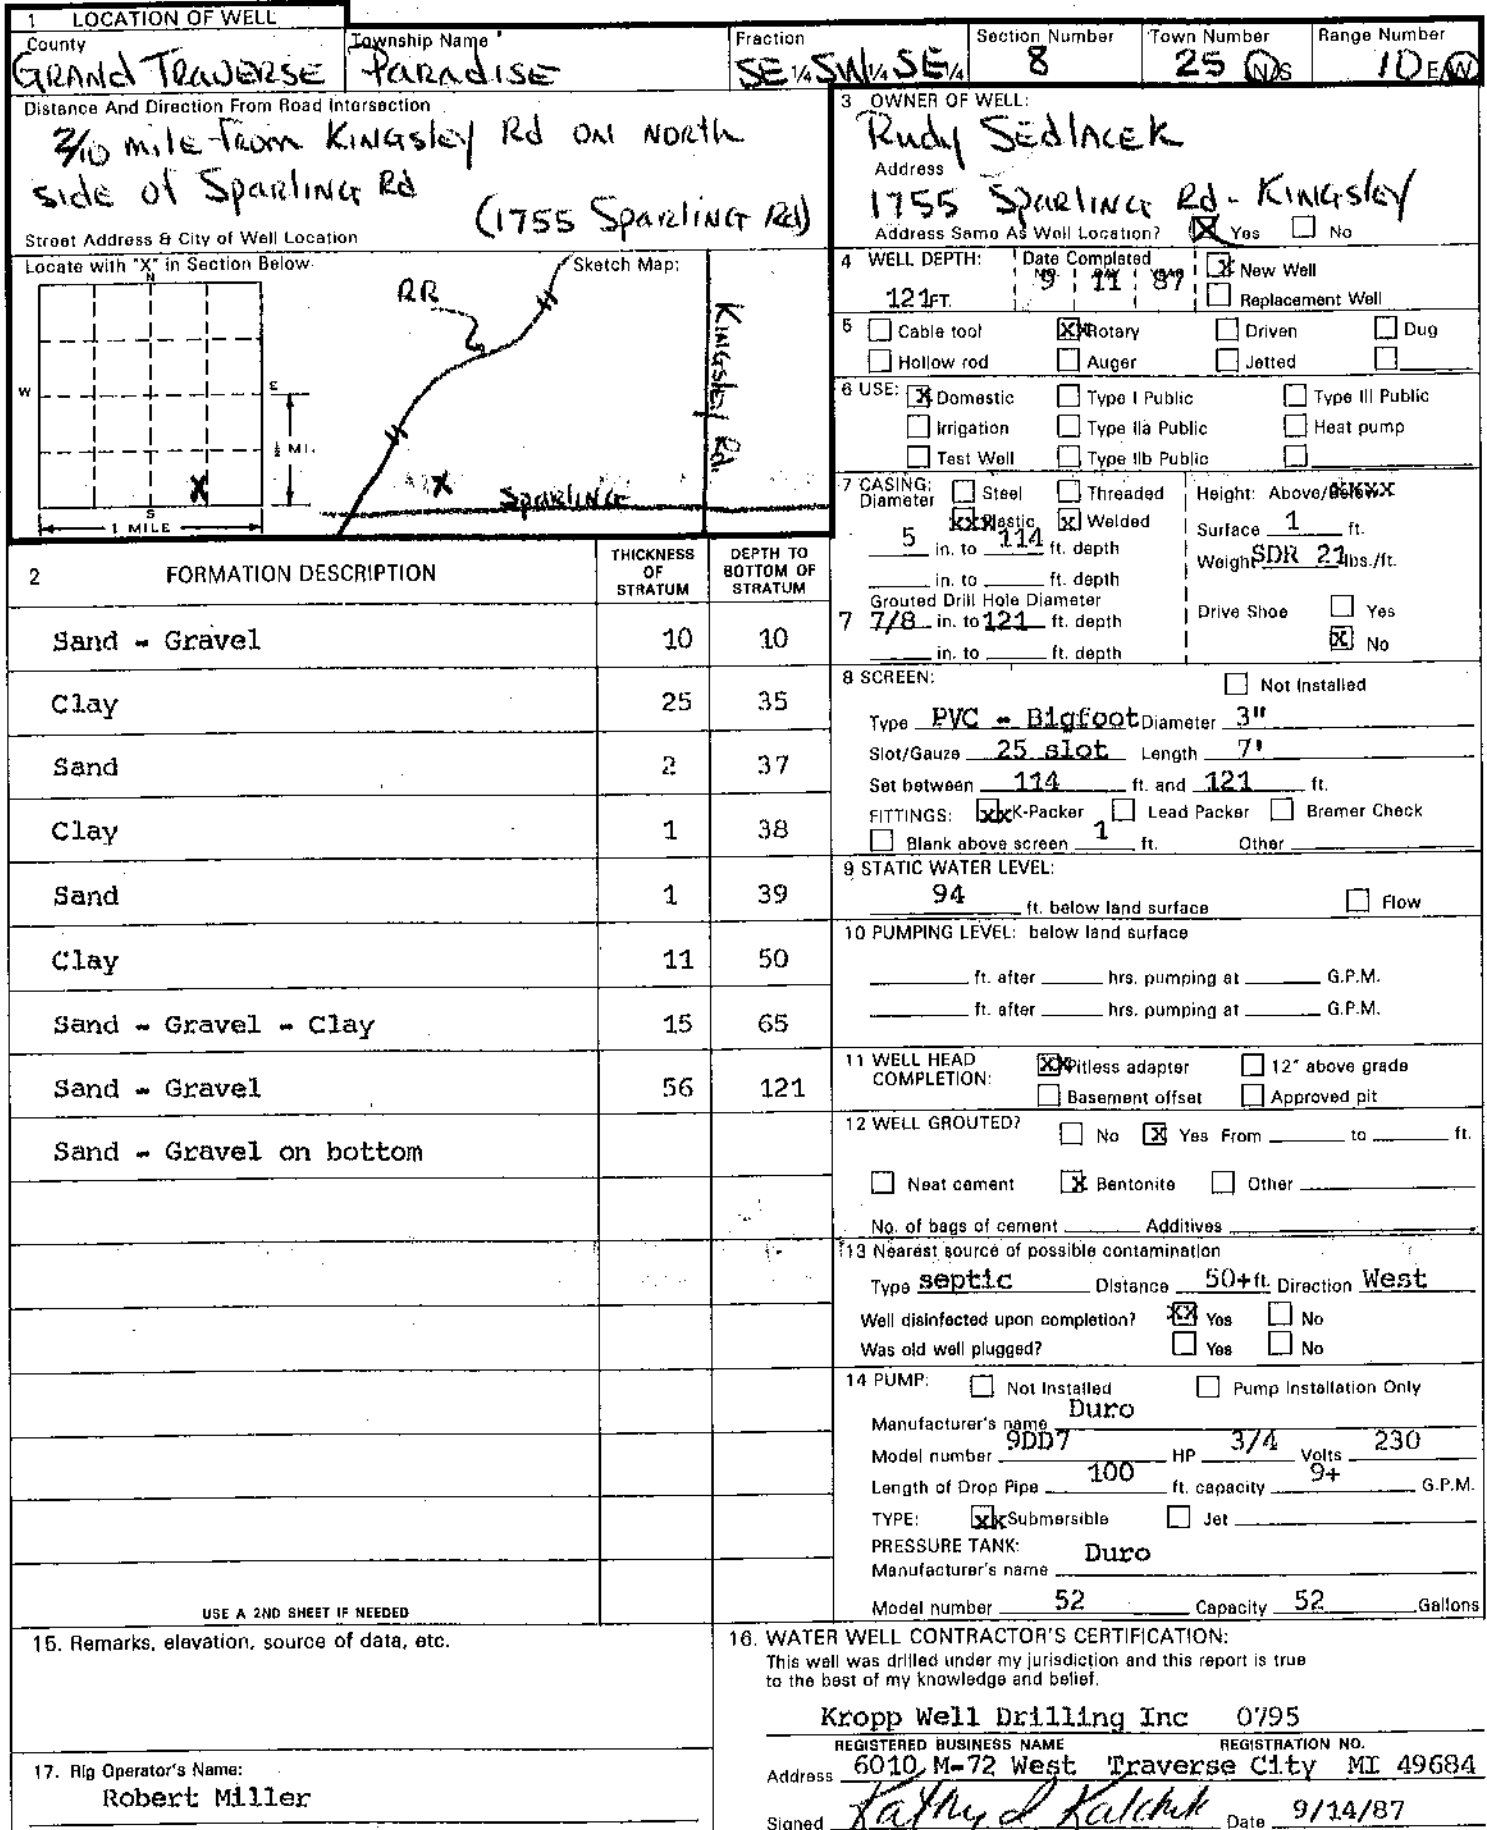 1 LOCATION OF WELL
County Township Name Fraction Section Number Town Number Range Number
GRANd TRAVERSE PARADISE SE 1/4 SW 1/4 SE 1/4 8 25 N/S 10 E/W
Distance And Direction From Road Intersection
2/10 mile From KINGsley Rd ON NORth
side of SparlING Rd
(1755 SparlING Rd)
Street Address & City of Well Location
Locate with "X" in Section Below
Sketch Map:
N
W
E
S
1 MILE
½ MI.
X
RR
KINGSlEy Rd.
X
SparlING
3 OWNER OF WELL:
Rudy SEdlACEK
Address
1755 SparlING Rd - KINGsley
Address Same As Well Location? X Yes No
4 WELL DEPTH: Date Completed
MO. DAY YEAR
121 FT. 9 11 87
X New Well
Replacement Well
5 Cable tool XX Rotary Driven Dug
Hollow rod Auger Jetted
6 USE: X Domestic Type I Public Type III Public
Irrigation Type IIa Public Heat pump
Test Well Type IIb Public
7 CASING: Steel Threaded Height: Above/Below XXXX
Diameter XXX Plastic X Welded Surface 1 ft.
5 in. to 114 ft. depth
Weight SDR 21 lbs./ft.
in. to ft. depth
Grouted Drill Hole Diameter
7 7/8 in. to 121 ft. depth
Drive Shoe Yes
X No
in. to ft. depth
8 SCREEN: Not Installed
Type PVC - Bigfoot Diameter 3"
Slot/Gauze 25 slot Length 7'
Set between 114 ft. and 121 ft.
FITTINGS: XX K-Packer Lead Packer Bremer Check
Blank above screen 1 ft. Other
9 STATIC WATER LEVEL:
94 ft. below land surface Flow
10 PUMPING LEVEL: below land surface
ft. after hrs. pumping at G.P.M.
ft. after hrs. pumping at G.P.M.
11 WELL HEAD COMPLETION: XX Pitless adapter 12" above grade
Basement offset Approved pit
12 WELL GROUTED? No X Yes From to ft.
Neat cement X Bentonite Other
No. of bags of cement Additives
13 Nearest source of possible contamination
Type septic Distance 50+ ft. Direction West
Well disinfected upon completion? XX Yes No
Was old well plugged? Yes No
14 PUMP: Not Installed Pump Installation Only
Manufacturer's name Duro
Model number 9DD7 HP 3/4 Volts 230
Length of Drop Pipe 100 ft. capacity 9+ G.P.M.
TYPE: XX Submersible Jet
PRESSURE TANK:
Manufacturer's name Duro
Model number 52 Capacity 52 Gallons
2 FORMATION DESCRIPTION THICKNESS OF STRATUM DEPTH TO BOTTOM OF STRATUM
Sand - Gravel 10 10
Clay 25 35
Sand 2 37
Clay 1 38
Sand 1 39
Clay 11 50
Sand - Gravel - Clay 15 65
Sand - Gravel 56 121
Sand - Gravel on bottom
USE A 2ND SHEET IF NEEDED
15. Remarks, elevation, source of data, etc.
17. Rig Operator's Name:
Robert Miller
16. WATER WELL CONTRACTOR'S CERTIFICATION:
This well was drilled under my jurisdiction and this report is true
to the best of my knowledge and belief.
Kropp Well Drilling Inc 0795
REGISTERED BUSINESS NAME REGISTRATION NO.
Address 6010 M-72 West Traverse City MI 49684
Signed Kathy Date 9/14/87